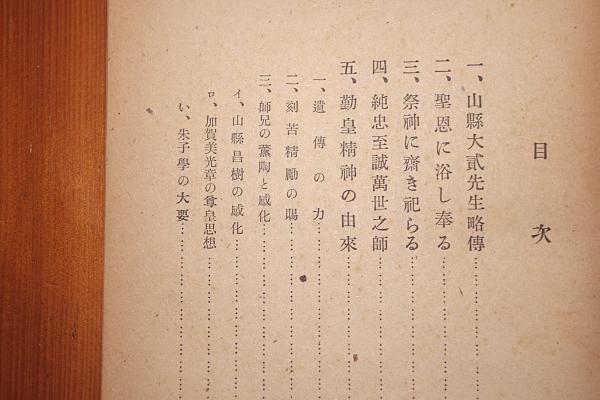 目次
一、山縣大貳先生略傳
二、聖恩に浴し奉る
三、祭神に齋き祀らる
四、純忠至誠萬世之師
五、勤皇精神の由來
一、遺傳の力
二、刻苦精勵の賜
三、師兄の薰陶と感化
イ、山縣昌樹の感化
ロ、加賀美光章の尊皇思想
い、朱子學の大要